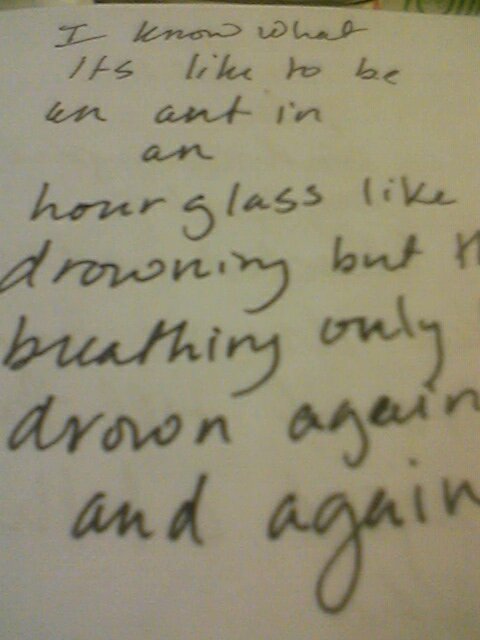 I know what
Its like to be
an ant in
an
hour glass like
drowning but
breathing only
drown again
and again